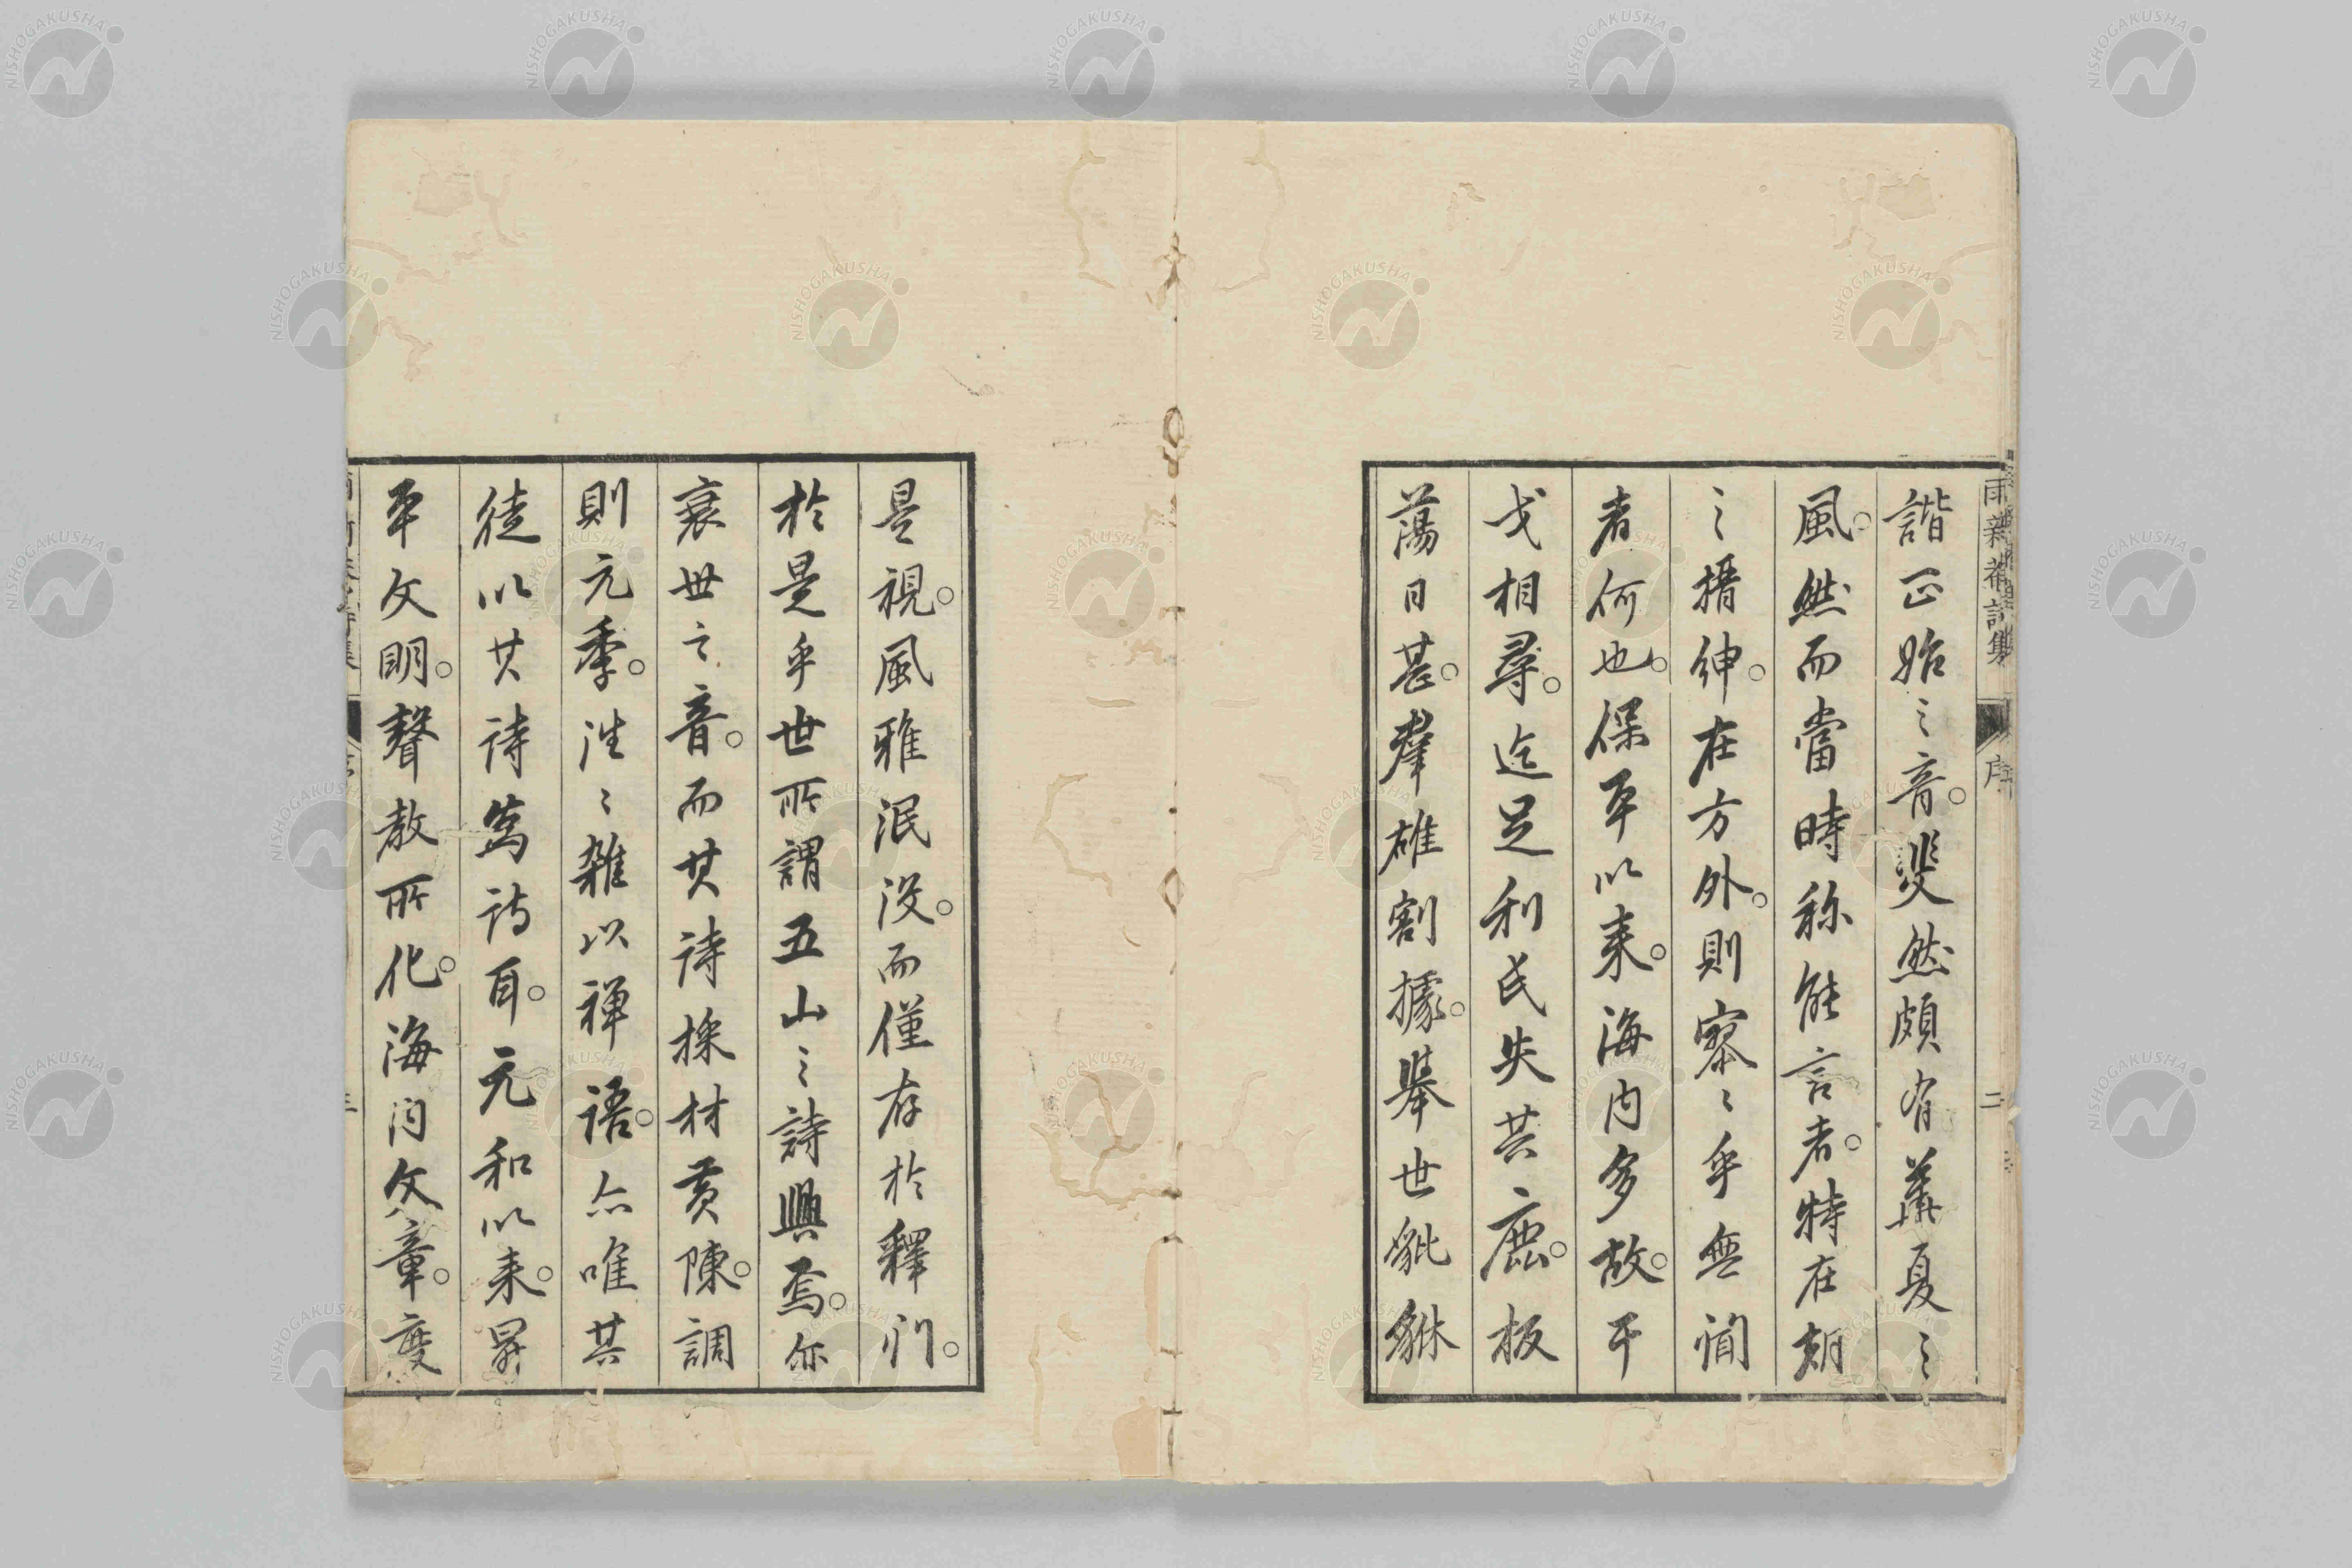 諧正始之音。斐然頗有華夏之
風。然而當時称能言者。特在朝
之搢紳。在方外。則寥〻乎無聞
者何也。保平以来。海内多故。干
戈相尋。迄足利氏失其鹿。板
蕩日甚。群雄割據。舉世貔貅
是視。風雅泯没。而僅存於釋門。
於是乎世所謂五山之詩興焉。亦
衰世之音。而其詩採材黄陳。調
則元季。往〻雑以禅語。亦唯其
徒以其詩為詩耳。元和以来。昇
平文明。聲教所化。海内文章。度
序
二
NISHOGAKUSHA